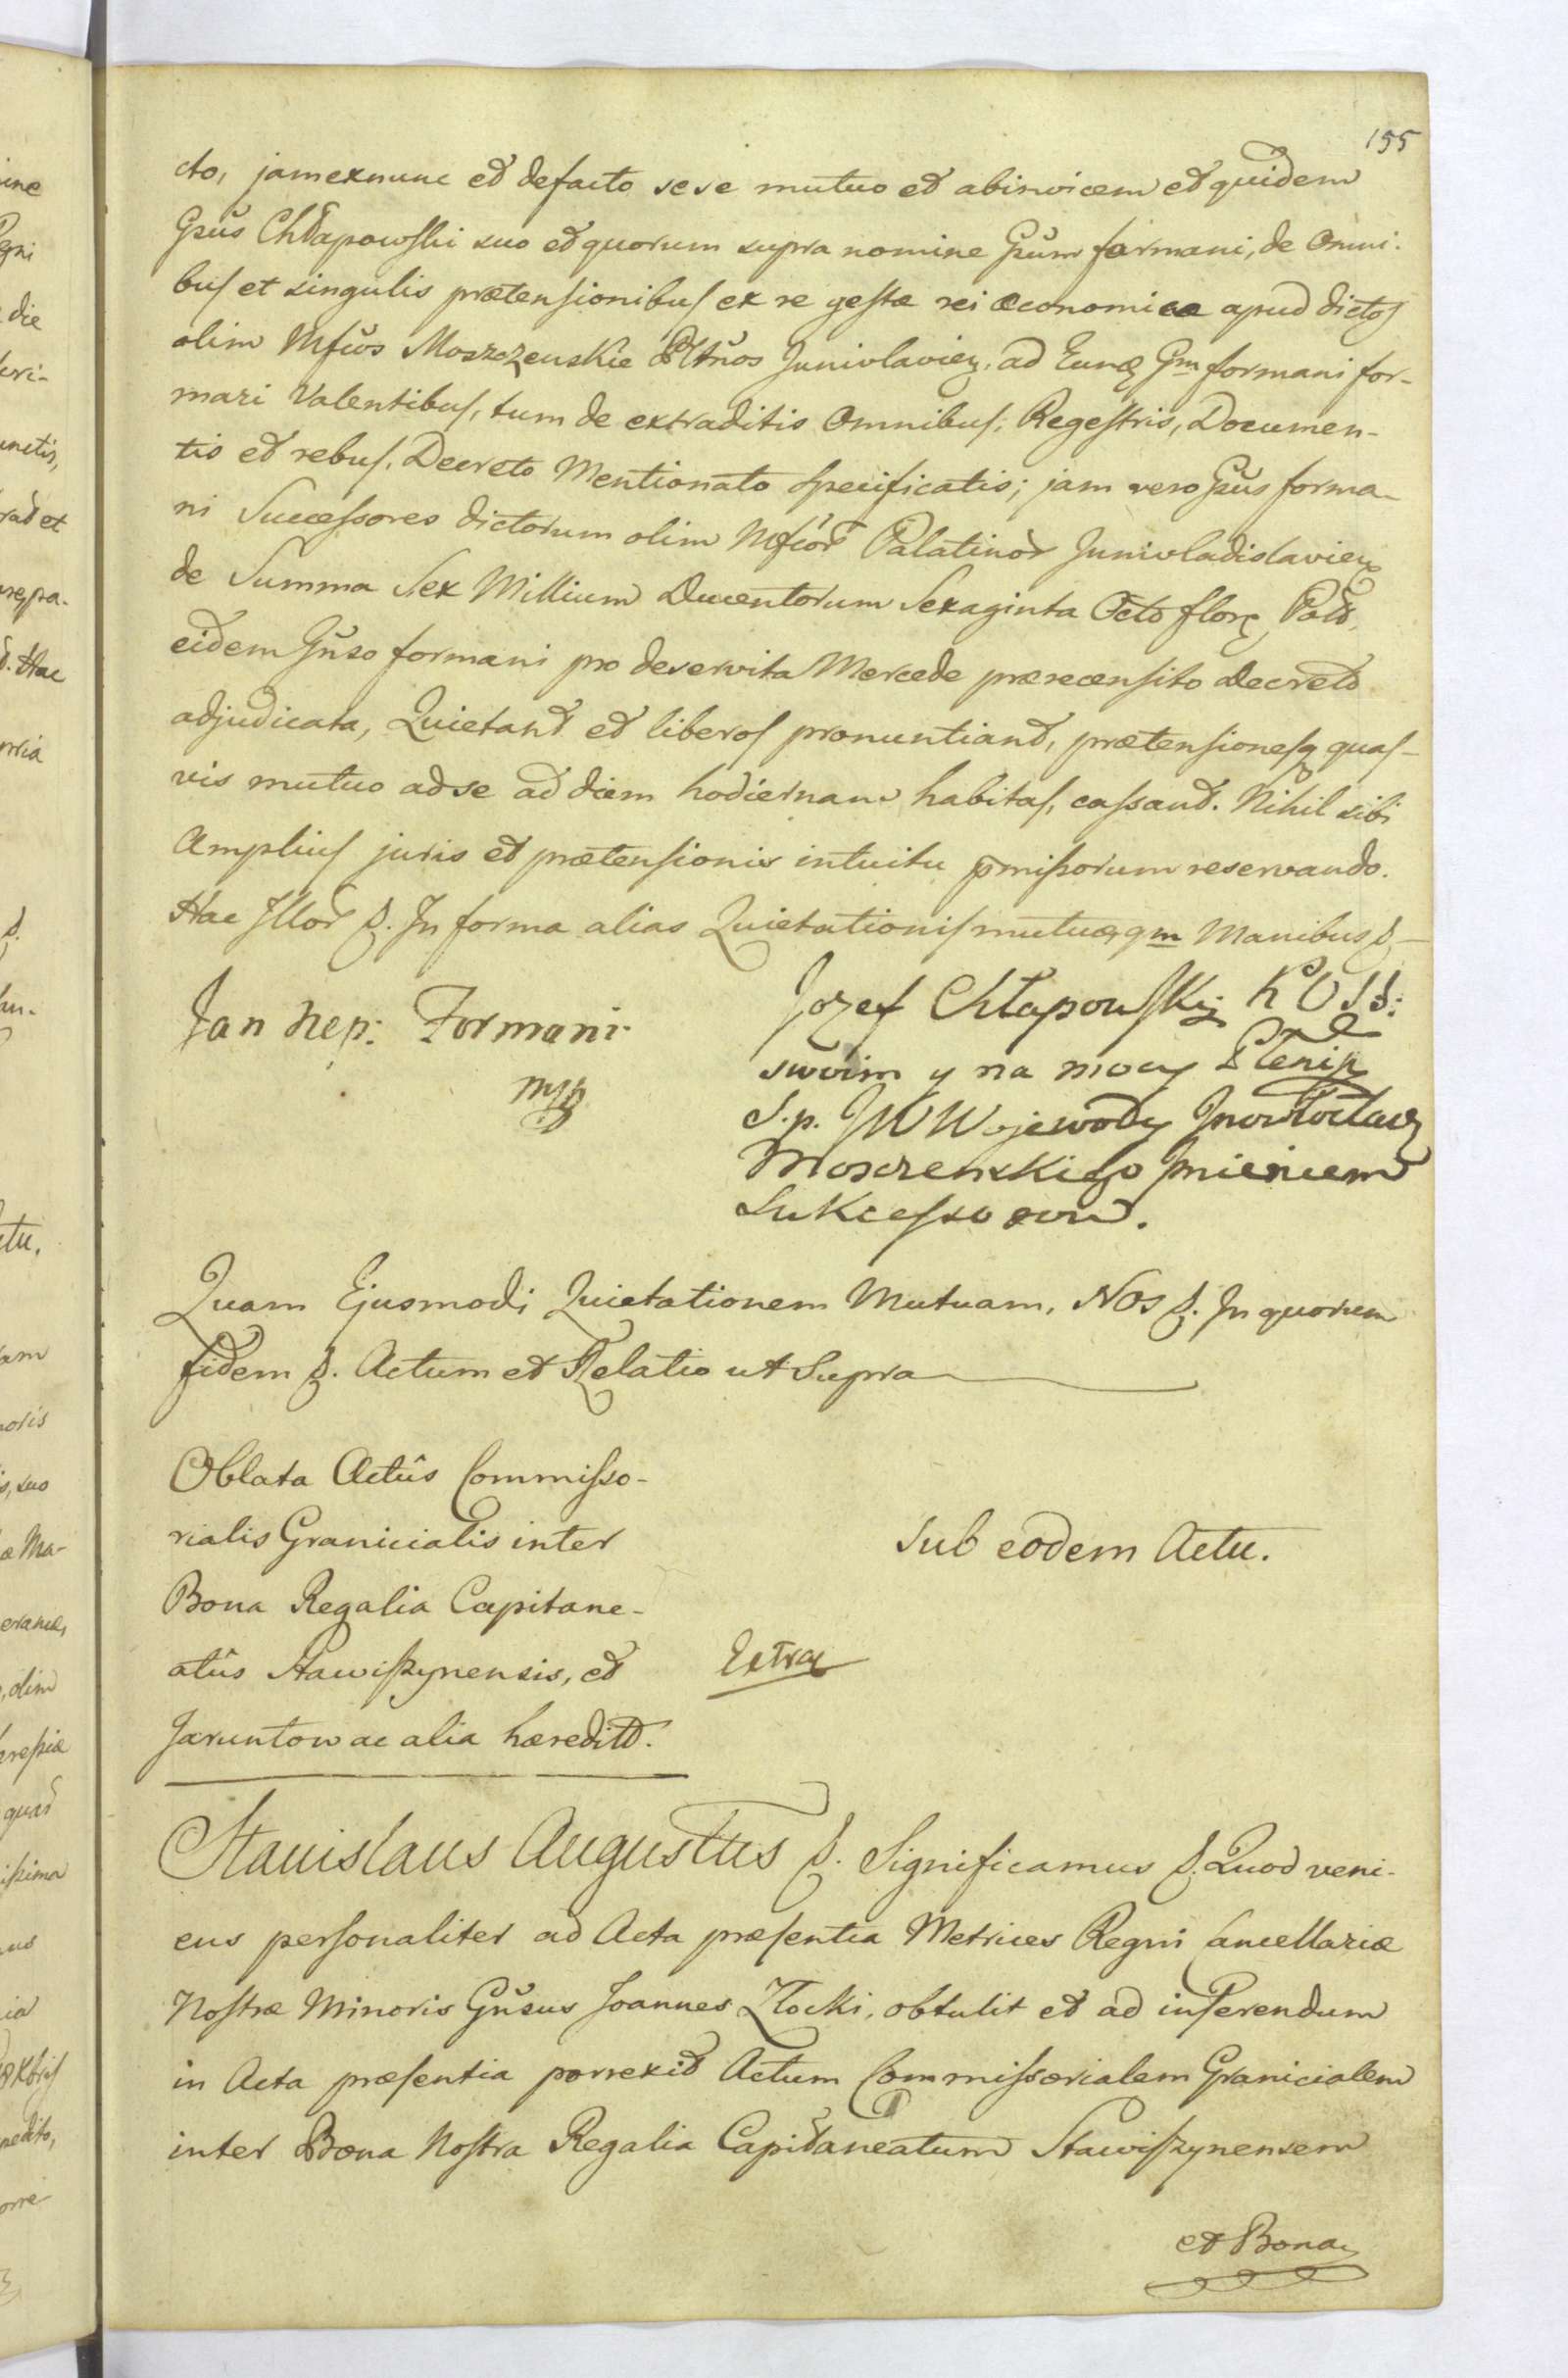 155
cto, jamexnunc et defacto sese mutuo et abinvicem et quidem
Gsus Chłapowski suo et quorum supra nomine Gsum formani, de Omni-
bus et singulis prætensionibus ex re gestæ rei œconomicæ apud dictos
olim Mfcos Moszczenskie Junivlavien. ad Eunq Gm formani for-
mari Valentibus, tum de extraditis Omnibus, Regestris, Documen-
tis et rebus, Decreto Mentionato Specificatis; jam vero Gsus forma-
ni Successores dictorum olim Mfcor Palatinor Junivladislavien
de Summa Sex Millium Ducentorum Sexaginta Octo flor Pol.
eidem Gnso formani pro deservita Mercede præcensito Decreto
adjudicata, Quietant et liberos pronuntiant, prætensionesq quas-
vis mutuo ad se ad diem hodiernam habitas, cassant. Nihil sibi
Amplius juris et prætensionis intuitu pmissorum reservando.
Hac Illor &. In forma alias Quietationis mutuæ, qm Manibus &
Jan Nep: Formani
mp
Jozef Chłapowskij K
swoim y na mocy Plenip
S.p. JW Wojewody Jnowrocław
Moszczenskiego Jmieniem
Sukcessorow.
Quam Ejusmodi Quietationem Mutuam, Nos &. In quorum
fidem &. Actum et Relatio ut Supra
Oblata Actûs Commisso-
rialis Granicialis inter
Bona Regalia Capitane-
atûs Stawiszynensis, et
Jaruntow ac alia hæredit.
Extrac
Sub eodem Actu.
Stanislaus Augustus &. Significamus &. Quod veni-
ens personaliter ad Acta præsentia Metrices Regni Cancellariæ
Nostræ Minoris Gnsus Joannes Złocki, obtulit et ad inserendum
in Acta præsentia porrexit Actum Commissorialem Granicialem
inter Bona Nostra Regalia Capitaneatum Stawiszynensem
et Bona